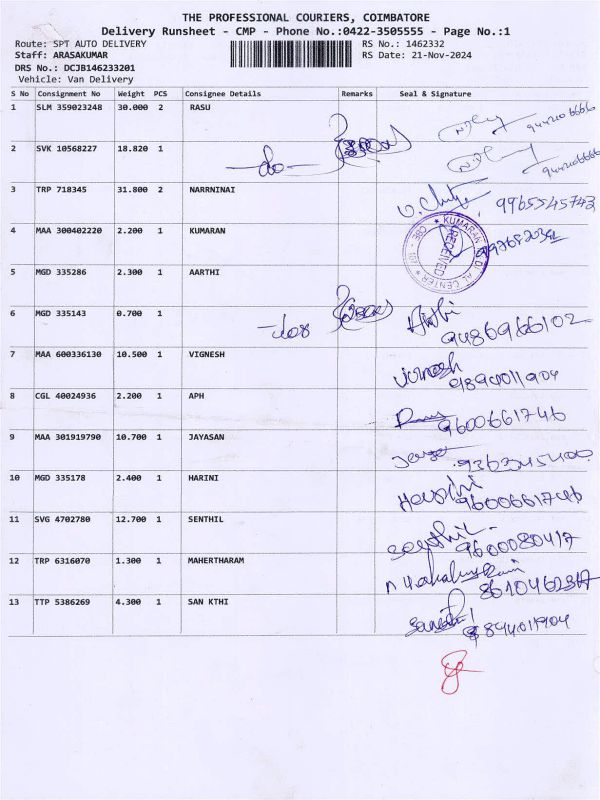 THE PROFESSIONAL COURIERS, COIMBATORE
Delivery Runsheet - CMP - Phone No.:0422-3505555 - Page No.:1
Route: SPT AUTO DELIVERY RS No.: 1462332
Staff: ARASAKUMAR RS Date: 21-Nov-2024
DRS No.: DCJB146233201
Vehicle: Van Delivery
S No Consignment No Weight PCS Consignee Details Remarks Seal & Signature
1 SLM 359023248 30.000 2 RASU
2 SVK 10568227 18.820 1 -do-
3 TRP 718345 31.800 2 NARRNINAI 9965545743
4 MAA 300402220 2.200 1 KUMARAN
RECEIVED
5 MGD 335286 2.300 1 AARTHI
6 MGD 335143 0.700 1 9486966102
7 MAA 600336130 10.500 1 VIGNESH
8 CGL 40024936 2.200 1 APH 9600661746
9 MAA 301919790 10.700 1 JAYASAN
10 MGD 335178 2.400 1 HARINI
11 SVG 4702780 12.700 1 SENTHIL 9600080417
12 TRP 6316070 1.300 1 MAHERTHARAM
13 TTP 5386269 4.300 1 SAN KTHI